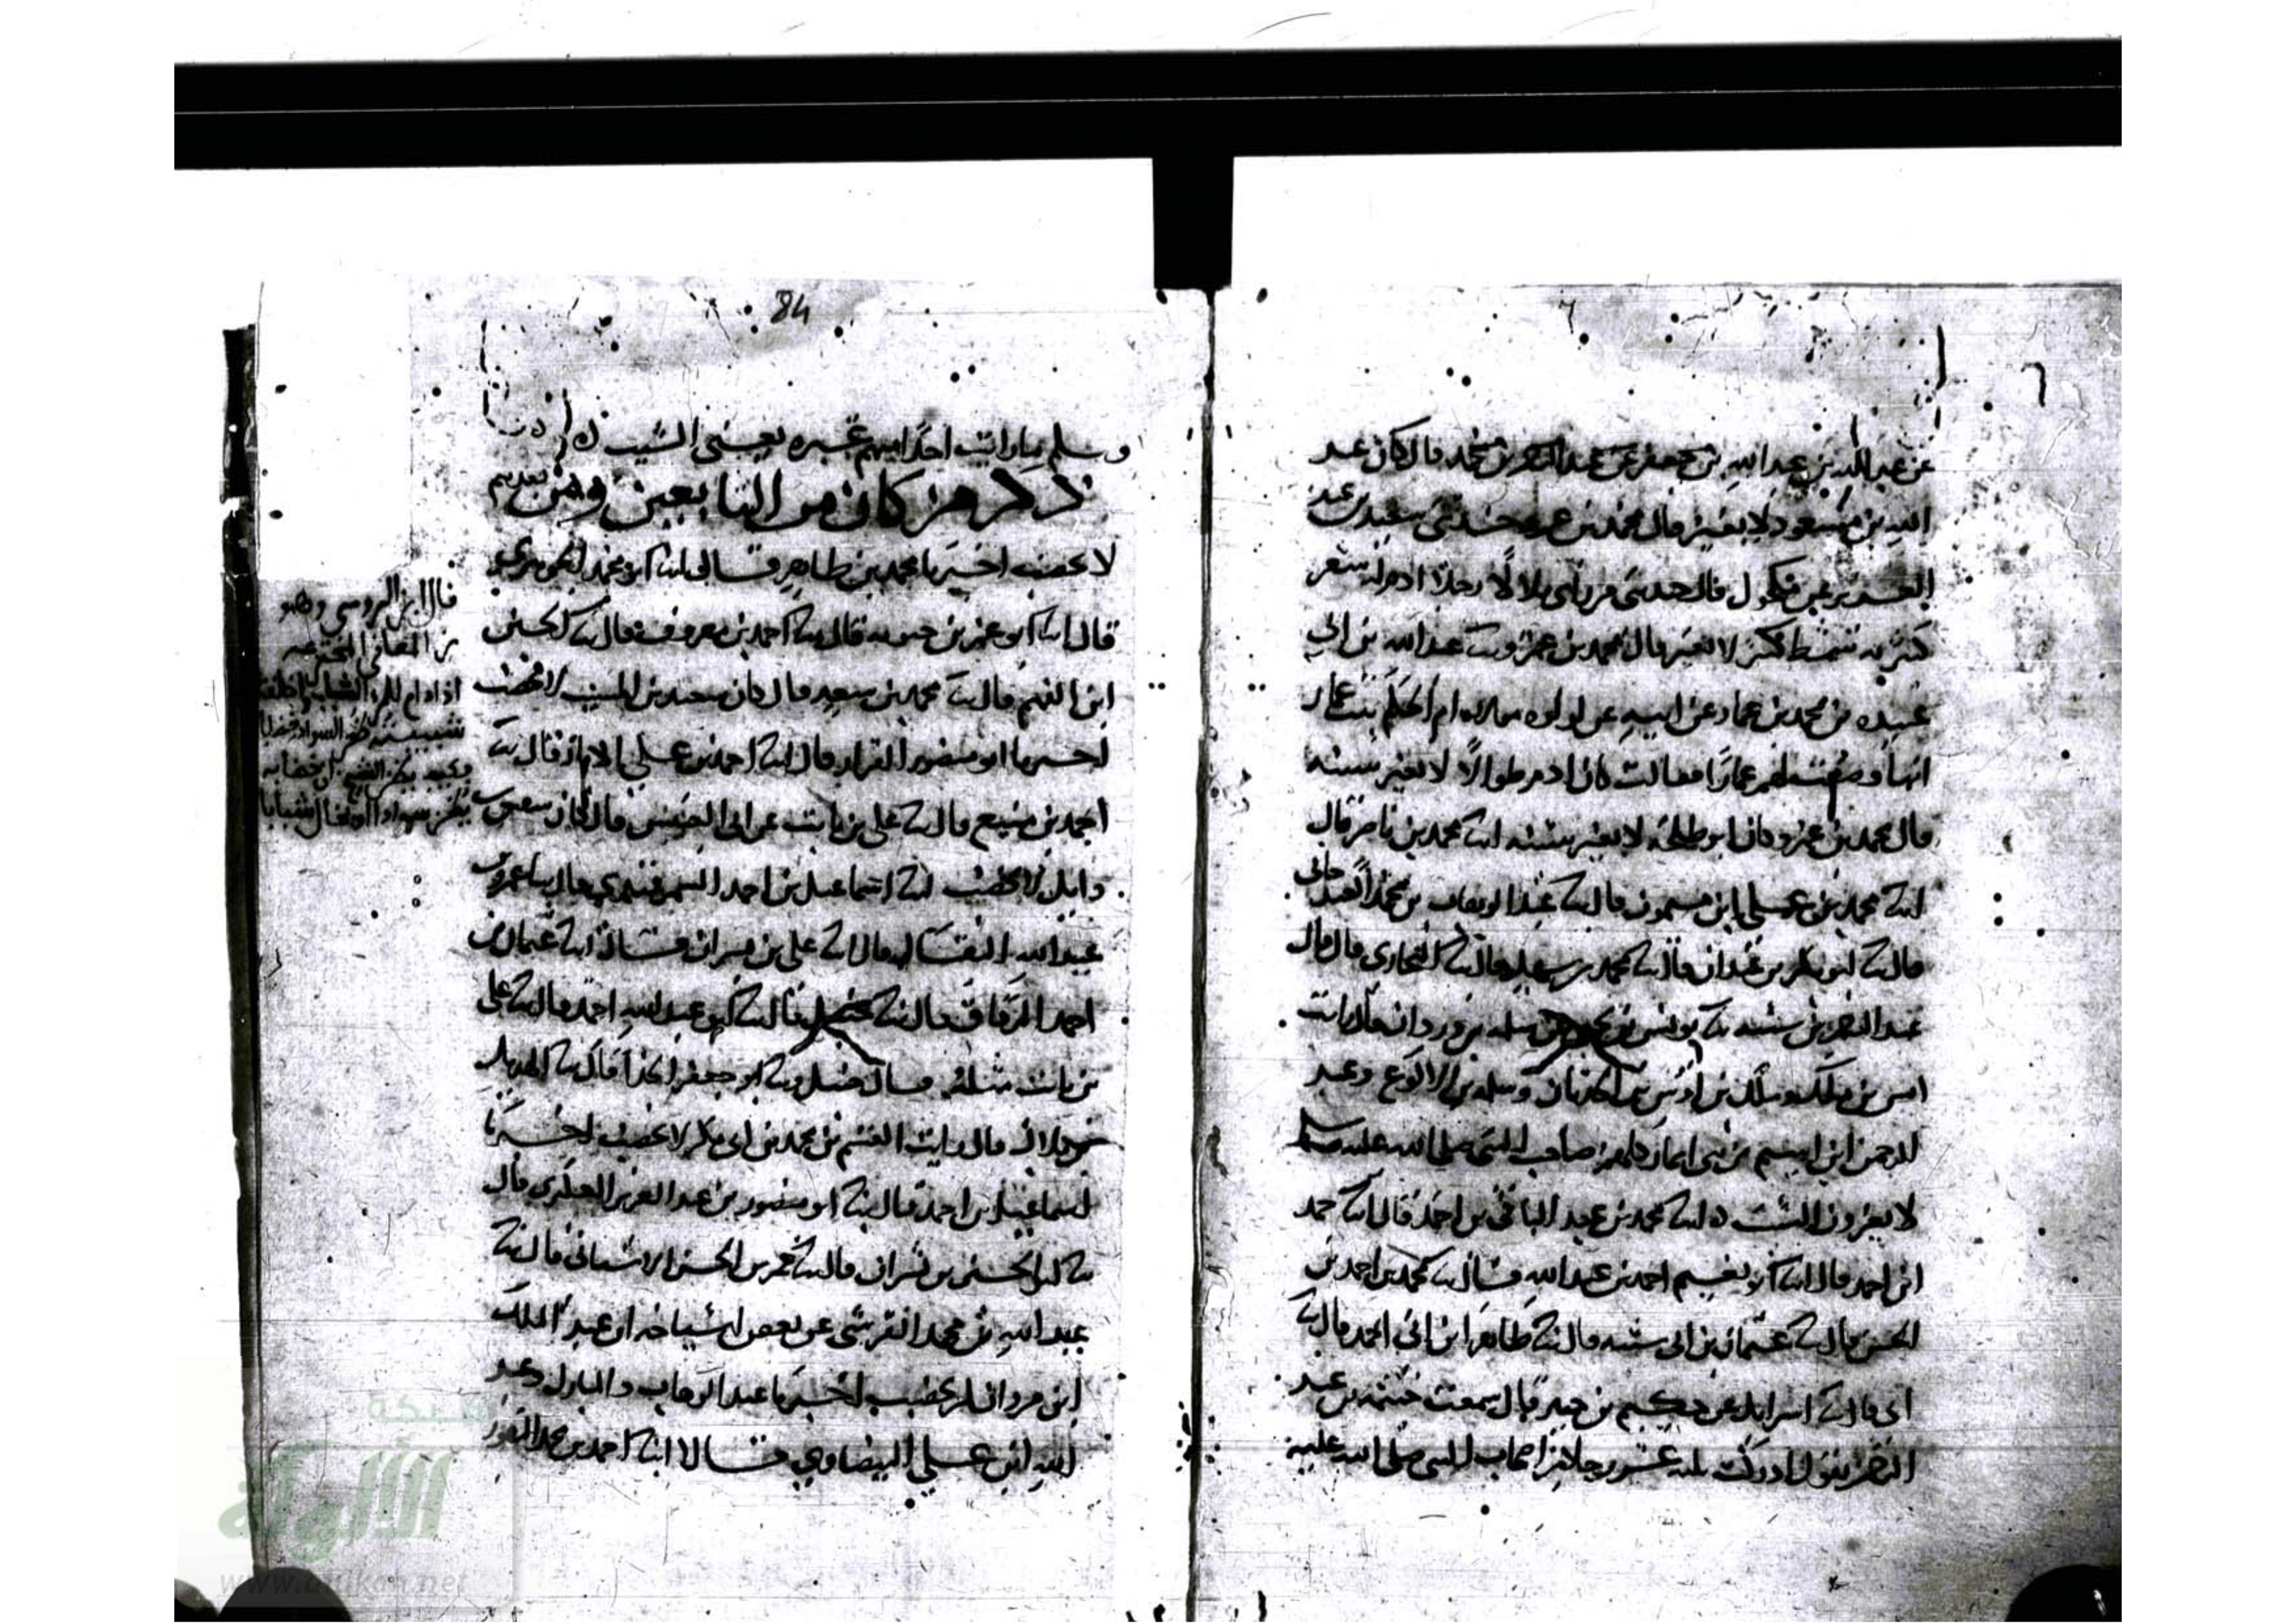 عن عبد الله بن جعفر عن بن محمد قال كان عبد
الله بن مسعود لا يغير قال محمد بن عمر وحدثني سعيد بن عبد
العزيز عن مكحول قال حدثني من رأى بلالا رجلا ادم له شعر
كثير به شمط كثير لا يغير قال محمد بن عمر وثنا عبد الله بن ابي
عبيدة بن محمد بن عمار عن ابيه عن لولوه مولاه ام الحكم بنت عمار
انها وصفت لهم عمارا فقالت كان ادم طوالا لا يغير شيبه
قال محمد بن عمر وكان ابو طلحة لا يغير شيبه انبا محمد بن ناصر قال
انبا محمد بن علي ابن ميمون قال انبا عبد الوهاب بن محمد الغندجاني
قال انبا ابو بكر بن عبدان قال ثنا محمد بن سهل قال ثنا البخاري قال قال
عبد الرحمن بن شيبه ثنا يونس بن سلمه بن وردان قال رايت
انس بن ملك وملك بن اوس بن الحدثان وسلمه بن الاكوع وعبد
الرحمن ابن اشيم من بني انمار كلهم صاحب النبي صلى الله عليه وسلم
لا يغيرون الشيب ه انبا محمد بن عبد الباقي بن احمد قال انبا حمد
ابن احمد قال انبا ابو نعيم احمد بن عبد الله قال ثنا محمد بن احمد بن
الحسن قال ثنا عثمان بن ابي شيبه قال ثنا طاهر ابن ابي احمد قال ثنا
ابي قال ثنا اسرايل عن حكيم بن جبير قال سمعت خيثمه بن عبد
يقول ادركت ثلثه عشر رجلا من اصحاب النبي صلى الله عليه
84
وسلم ما رايت احدا منهم غيره يعني الشيب ه
ذكر من كان من التابعين ومن بعدهم
لا يخضب اخبرنا محمد بن طاهر قال انبا ابو محمد الجوهري
قال انبا ابو عمر بن حيويه قال ثنا احمد بن معروف قال ثنا الحسين
ابن الفهم قال ثنا محمد بن سعد قال كان سعيد بن المسيب لا يخضب
اخبرنا ابو منصور القزاز قال انبا احمد بن علي قال ثنا
احمد بن منيع قال ثنا علي بن ثابت عن ابي قال كان شقيق بن
وايل لا يخضب انبا اسماعيل بن احمد السمرقندي قال انبا عمر بن
عبيد الله البقال قال انبا علي بن بشران قال انبا عثمان بن
احمد الدقاق قال ثنا حنبل قال ثنا ابو عبد الله احمد قال ثنا علي
بن ثابت مثله قال حنبل وثنا ابو جعفر الحذا قال ثنا الهذيل
بن بلال قال رايت القسم بن محمد بن ابي بكر لا يخضب اخبرنا
اسماعيل بن احمد قال انبا ابو منصور بن عبد العزيز العكبري قال
ثنا ابو الحسين بن بشران قال انبا عمر بن الحسن الاشناني قال ثنا
عبد الله بن محمد القرشي عن بعض اشياخه ان عبد الملك
ابن مروان لم يخضب اخبرنا عبد الوهاب بن المبارك وعبد
الله ابن علي البيضاوي قالا انبا احمد بن محمد النقور
قال ابن الرومي وهو
من المعاني المخترعه
اذا دام للمرء الشباب واخلقت
شبيبته ظن السواد خضابا
وكيف يظن الشيخ ان خضابه
يظن سوادا او يخال شبابا
شبكة
الألوكة
www.alukah.net